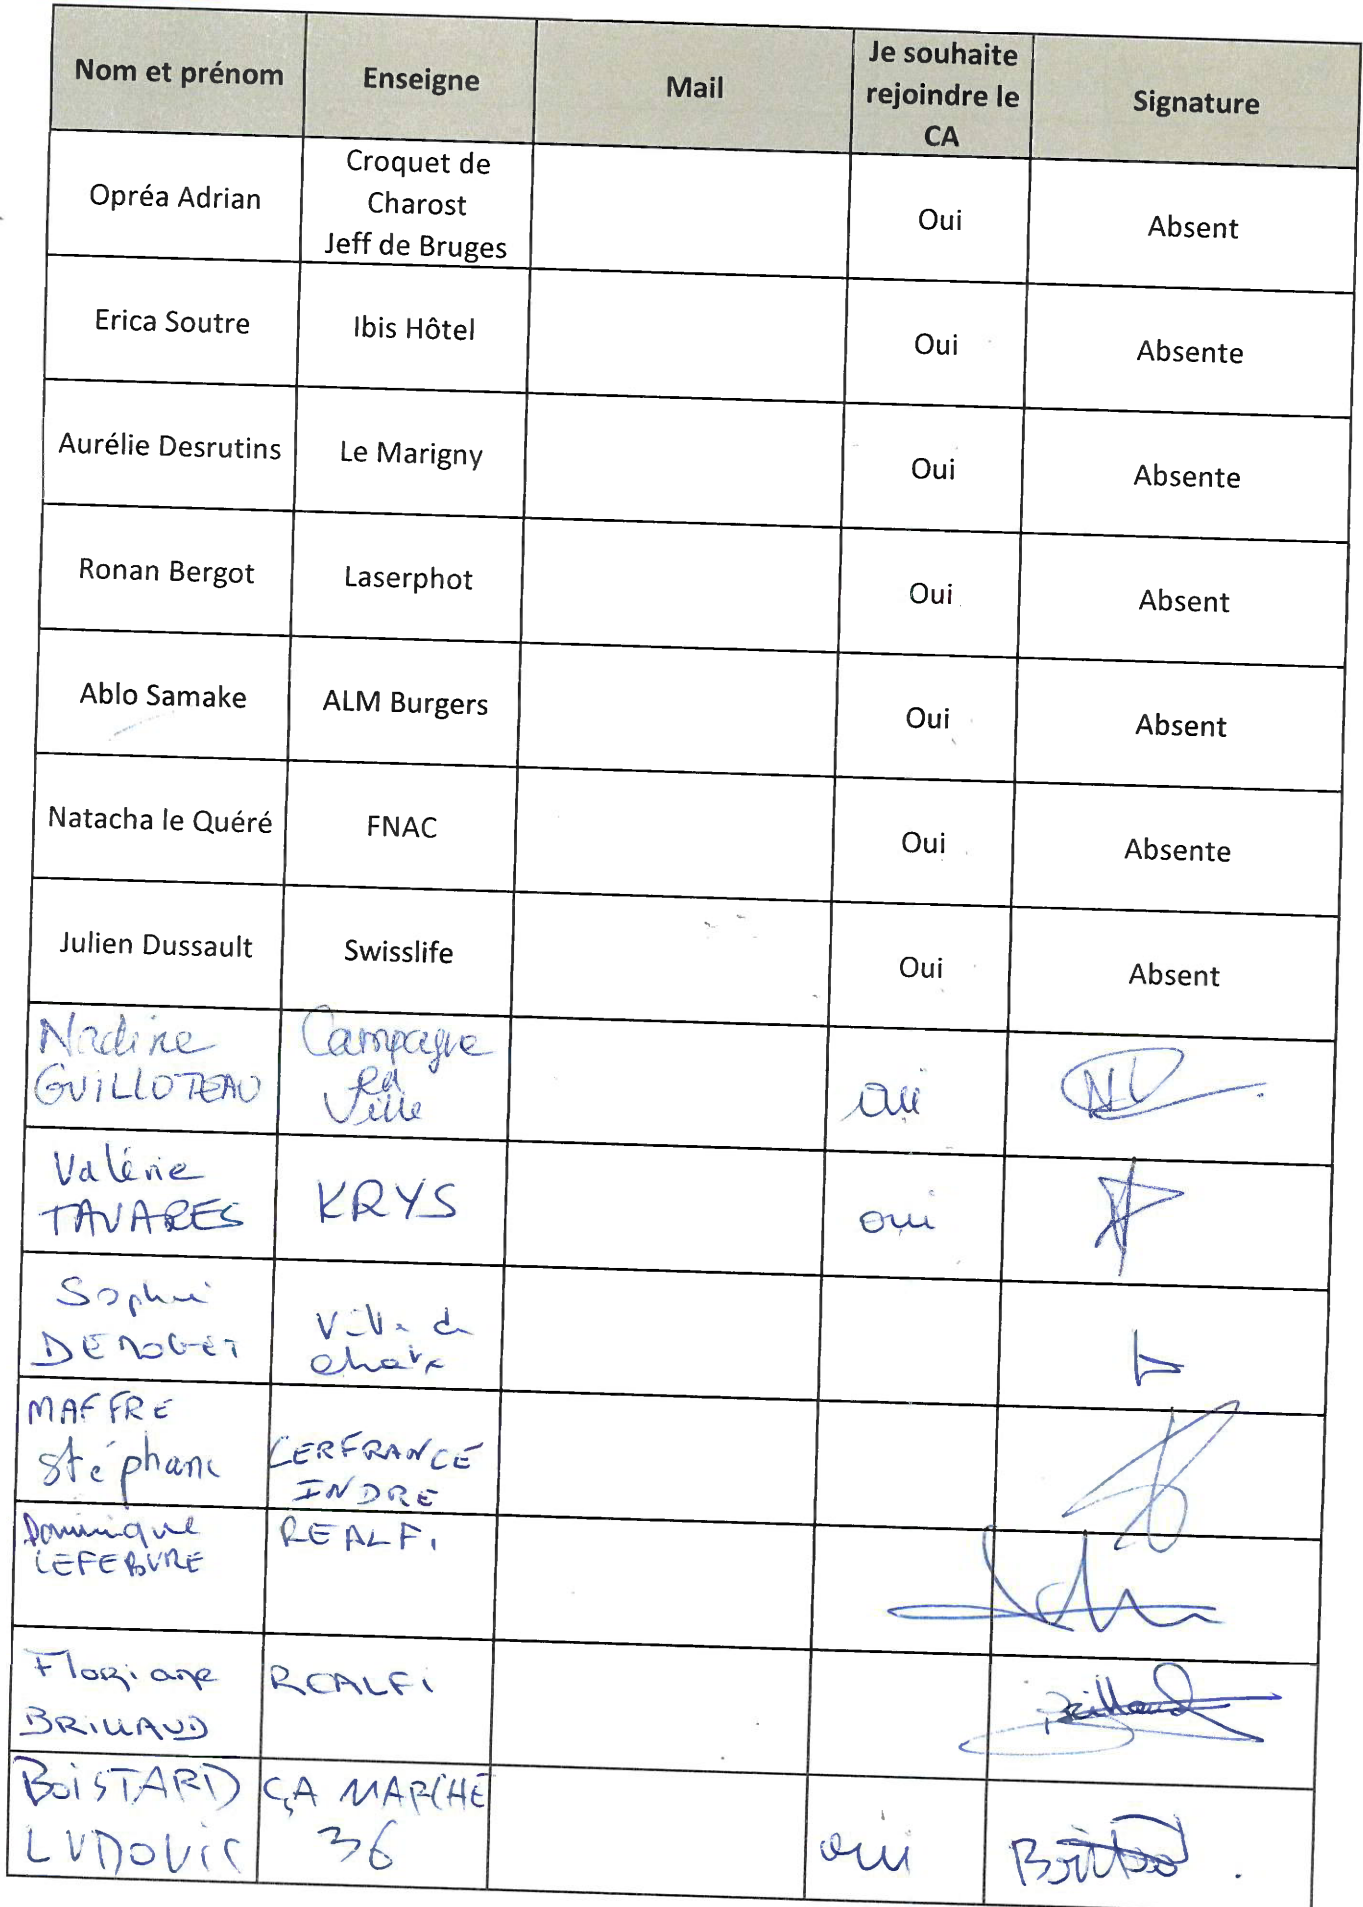 Nom et prénom Enseigne Mail Je souhaite rejoindre le CA Signature
Opréa Adrian Croquet de Charost Jeff de Bruges Oui Absent
Erica Soutre Ibis Hôtel Oui Absente
Aurélie Desrutins Le Marigny Oui Absente
Ronan Bergot Laserphot Oui Absent
Ablo Samake ALM Burgers Oui Absent
Natacha le Quéré FNAC Oui Absente
Julien Dussault Swisslife Oui Absent
Nadine GUILLOTEAU Campagne Ville oui
Valérie TAVARES KRYS oui
Sophie
MAFFRE Stéphane CERFRANCE INDRE
Dominique LEFEBVRE REALFI
Floriane BRILLAUD REALFI
BOISTARD LUDOVIC ÇA MARCHE 36 oui